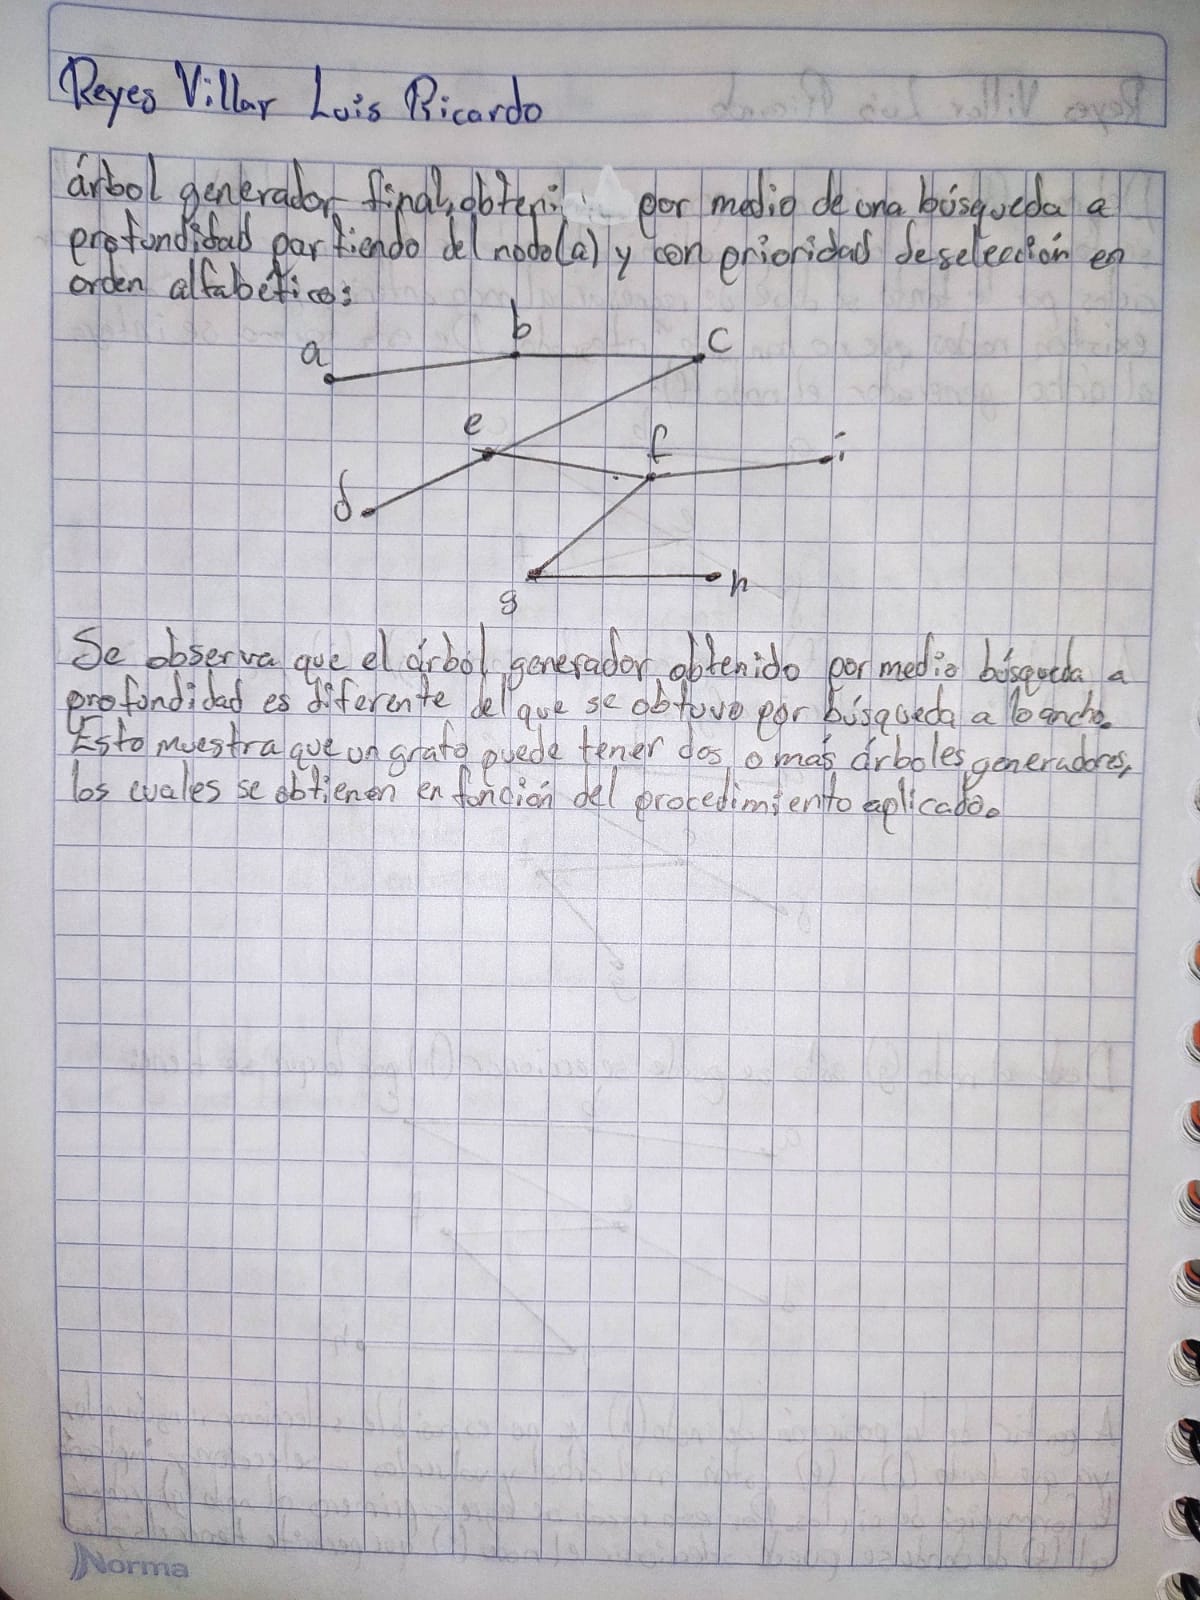 Reyes Villar Luis Ricardo
árbol generador final, obteni por medio de una búsqueda a
profundidad partiendo del nodo (a) y con prioridad de selección en
orden alfabético:
b
a
c
e
f
i
d
g
h
Se observa que el árbol generador obtenido por medio búsqueda a
profundidad es diferente del que se obtuvo por búsqueda a lo ancho.
Esto muestra que un grafo puede tener dos o más árboles generadores,
los cuales se obtienen en función del procedimiento aplicado.
Norma